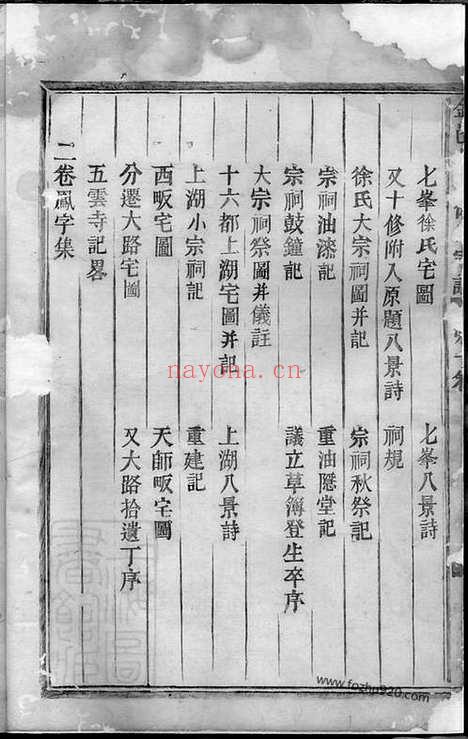 七峯徐氏宅圖　七峯八景詩
又十修附入原題八景詩　祠規
徐氏大宗祠圖并記　宗祠秋祭記
宗祠油漆記　重油隱堂記
宗祠鼓鐘記　議立草簿登生卒序
大宗祠祭圖并儀註
十六都上湖宅圖并記　上湖八景詩
上湖小宗祠記　重建記
西畈宅圖　天師畈宅圖
分遷大路宅圖　又大路拾遺丁序
五雲寺記畧
二卷鳳字集
nayona.cn
www.fozhp920.com